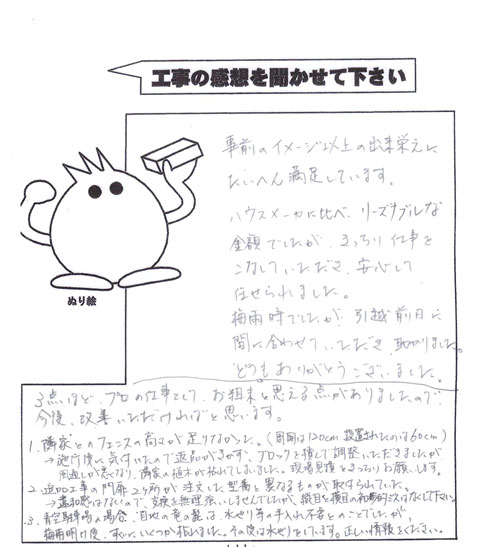 工事の感想を聞かせて下さい
事前のイメージ以上の出来栄えに
たいへん満足しています。
ハウスメーカーに比べ、リーズナブルな
金額でしたが、きっちり仕事を
こなしていただき、安心して
任せられました。
梅雨時でしたが、引越前日に
間に合わせていただき、助かりました。
どうもありがとうございました。
ぬり絵
3点ほど、プロの仕事として、お粗末と思える点がありましたので
今後、改善いただければと思います。
1. 隣家とのフェンスの高さが足りなかった。(周囲は120cm 設置されたのは60cm)
→施行後に気付いたので返品がきかず、ブロックを増して調整いただきましたが
風通しが悪くなり、隣家の植木が枯れてしまいました。現場見積をきっちりお願いします。
2. 追加工事の門扉2ヶ所が注文した型番と異なるものが取付られていた。
→違和感はないので、交換を無理強いしませんでしたが、
3. 青空駐車場の場合、目地の竜の髭は、水やり等の手入れ不要とのことでしたが、
梅雨明け後、すぐにいくつか枯れました。その後は水やりをしています。正しい情報をください。